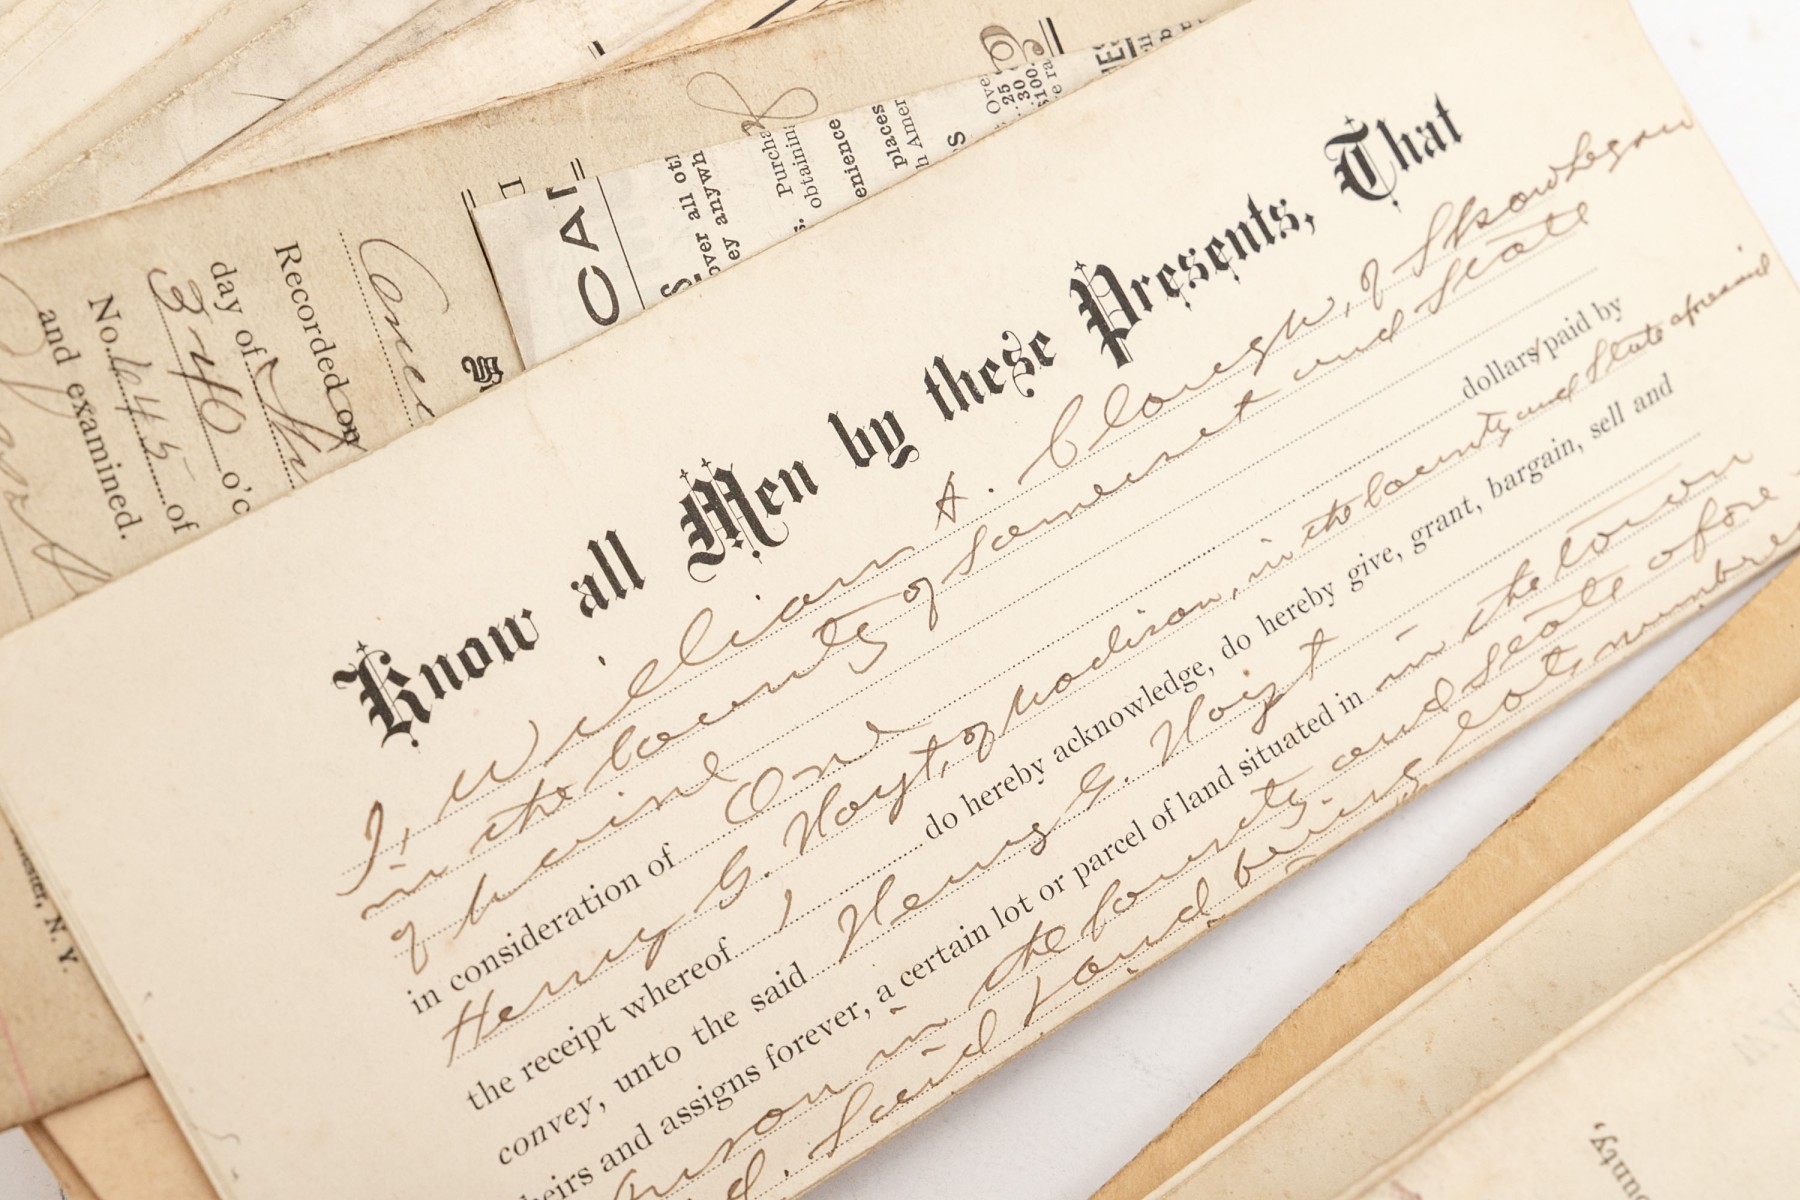 Know all Men by these Presents, That
I, William A. Clough, of Skowhegan
in the County of Somerset and State
of Maine
in consideration of One dollars paid by
Henry G. Hoyt, of Madison, in the County and State aforesaid
the receipt whereof I do hereby acknowledge, do hereby give, grant, bargain, sell and
convey, unto the said Henry G. Hoyt
heirs and assigns forever, a certain lot or parcel of land situated in in the town
in the County and State afore-
Said land being lots numbered
Recorded on
day of
340 o'c
No. 445 of
and examined.
CAL
over all ot
ey anywh
Purcha
obtainin
enience
places
h Amer
Over
25
30
$100.
N. Y.
unty,